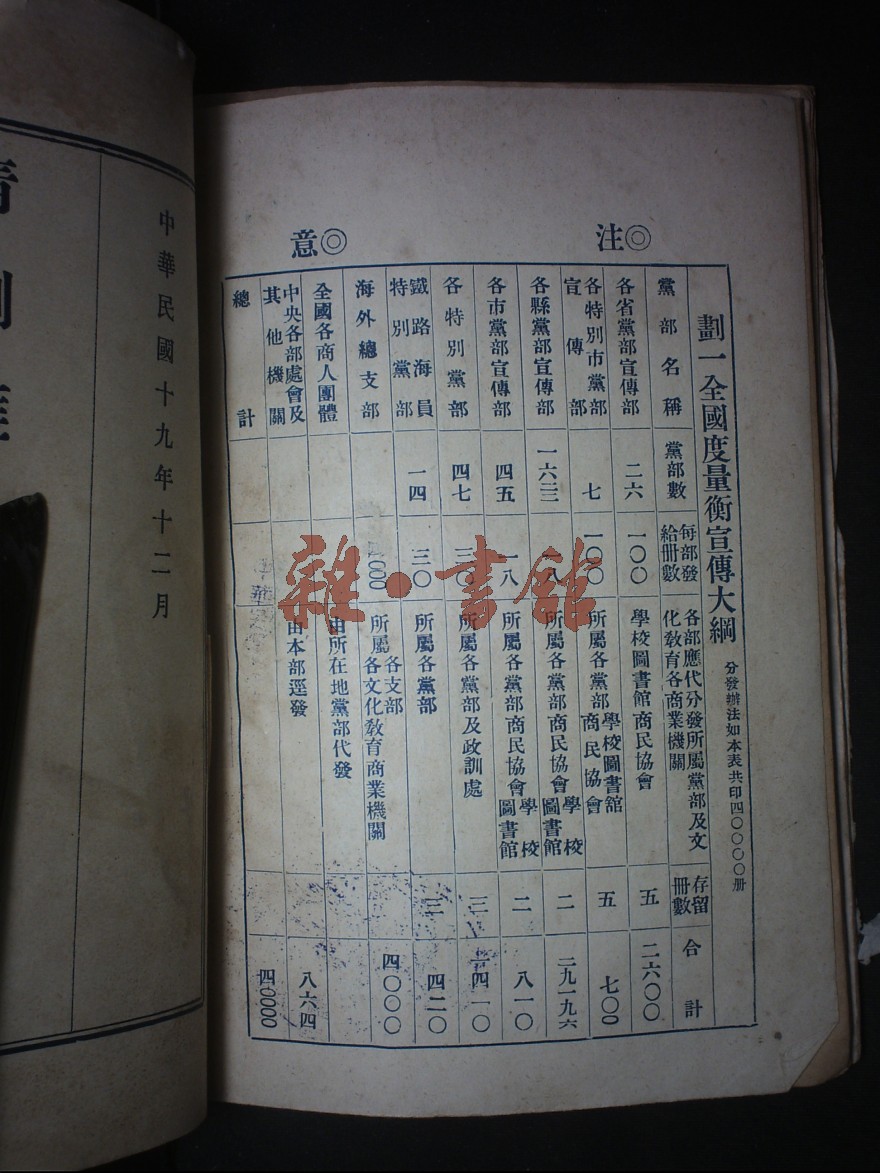 ◎注
◎意
劃一全國度量衡宣傳大綱
分發辦法如本表共印四〇〇〇〇册
黨部名稱
黨部數
每部發
給册數
各部應代分發所屬黨部及文
化敎育各商業機關
存留
册數
合計
各省黨部宣傳部
二六
一〇〇
學校圖書館商民協會
五
二六〇〇
各特別市黨部
宣傳部
七
一〇〇
所屬各黨部
學校圖書館
商民協會
五
七〇〇
各縣黨部宣傳部
一六二二
一八
所屬各黨部商民協會
學校
圖書館
二
二九一九六
各市黨部宣傳部
四五
一八
所屬各黨部商民協會
學校
圖書館
二
八一〇
各特別黨部
四七
三〇
所屬各黨部及政訓處
三
一四一〇
鐵路海員
特別黨部
一四
三〇
所屬各黨部
三
四二〇
海外總支部
所屬
各支部
各文化敎育商業機關
四〇〇〇
全國各商人團體
由所在地黨部代發
中央各部處會及
其他機關
由本部逕發
八六四
總計
四〇〇〇〇
中華民國十九年十二月
雜·書館